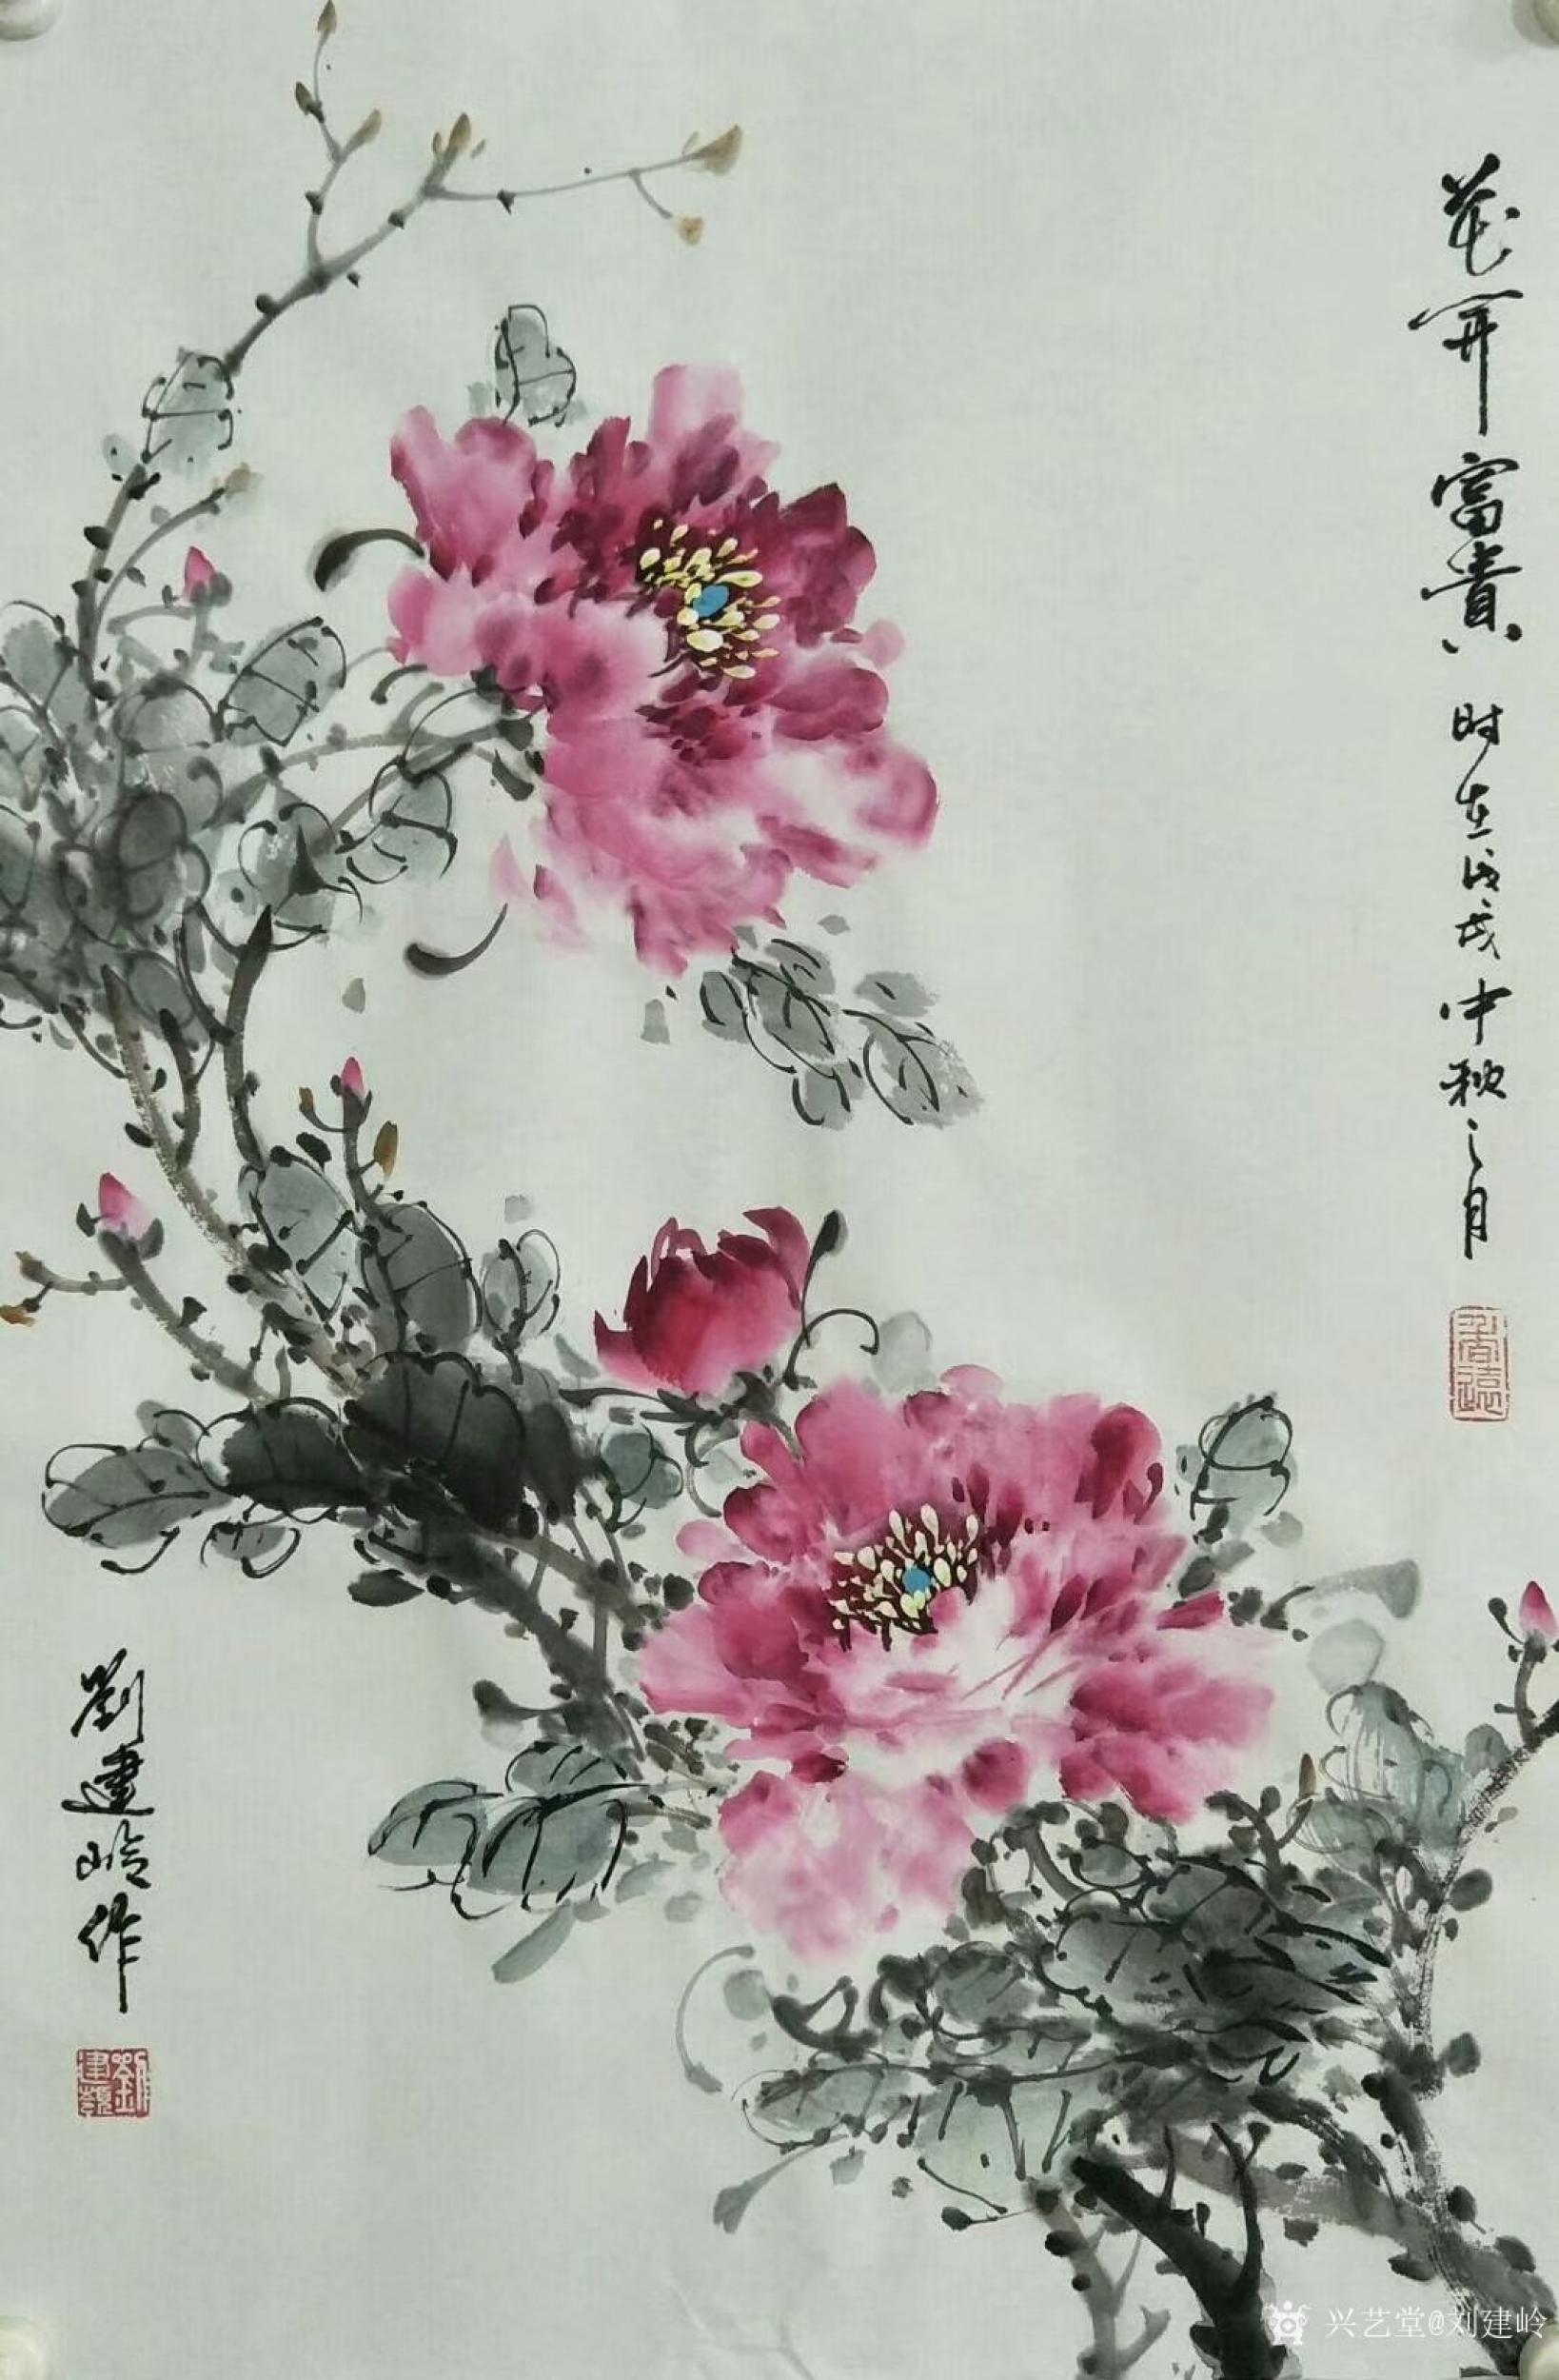 花开富貴 时在戊戌中秋之月
劉建岭作
兴艺堂@刘建岭